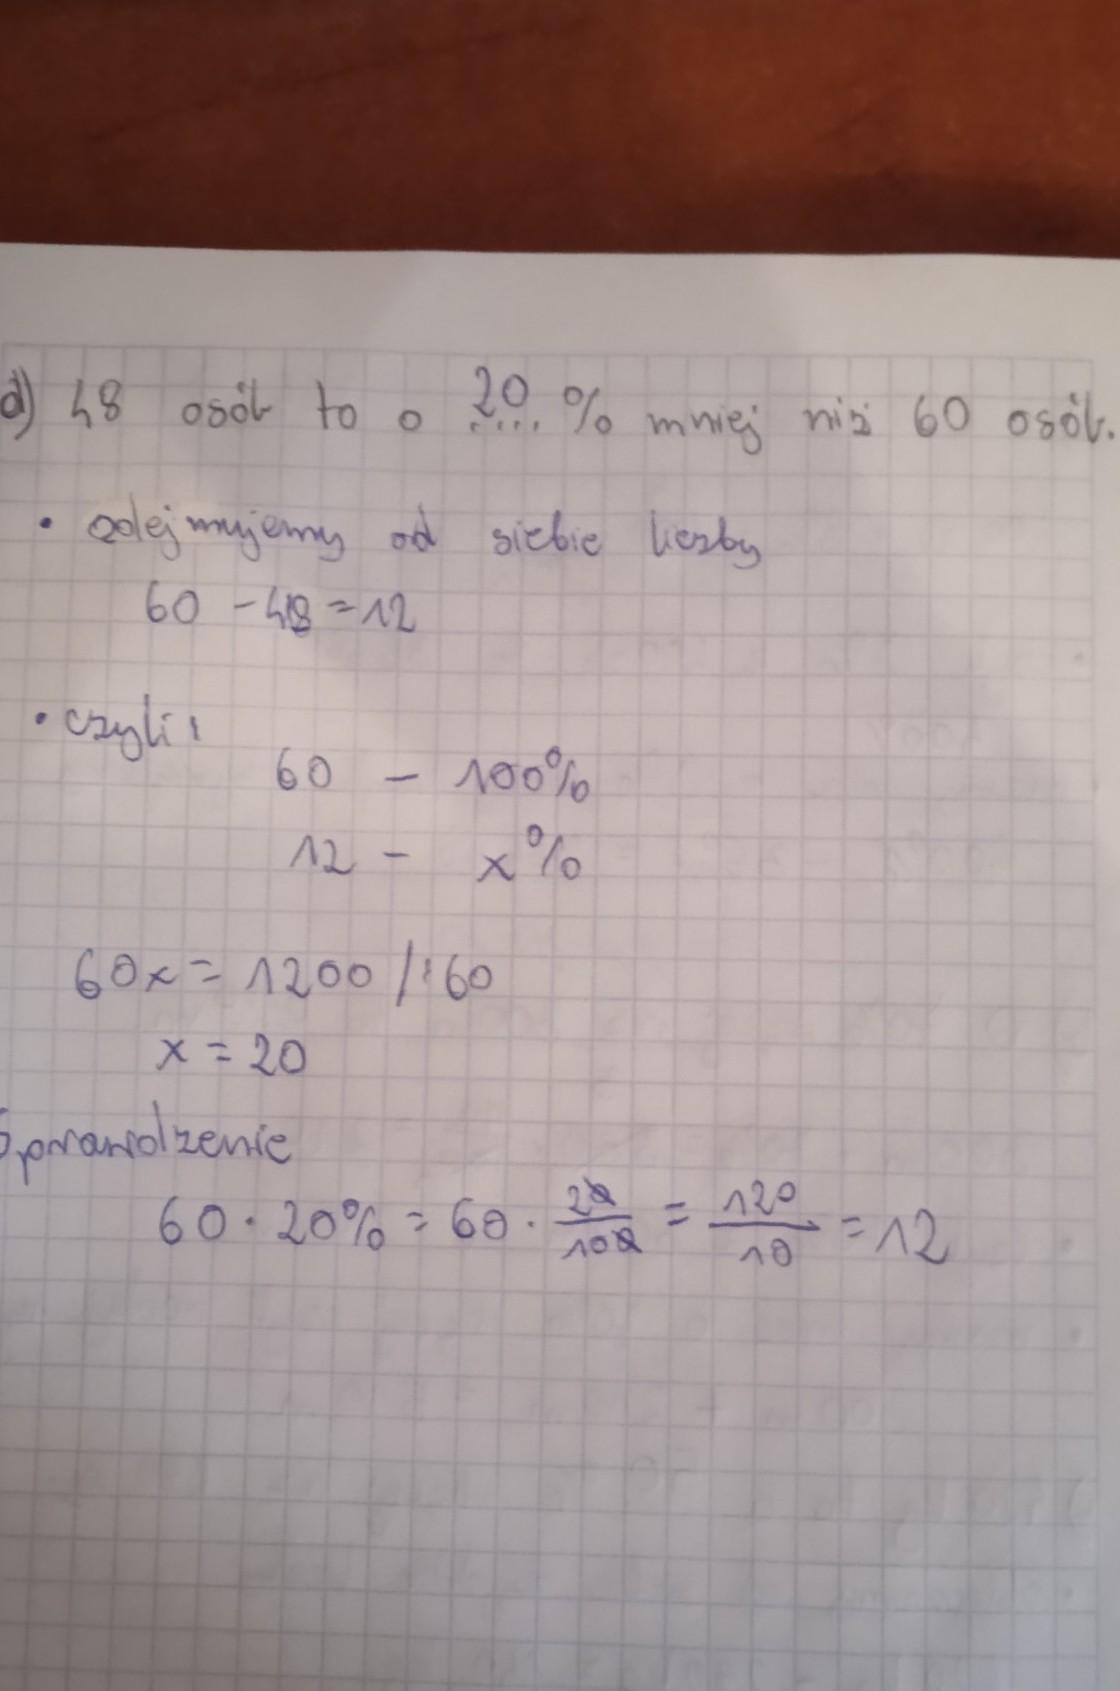 d) 48 osób to o 20 % mniej niż 60 osób.
• odejmujemy od siebie liczby
60 - 48 = 12
• czyli:
60 - 100%
12 - x%
60x = 1200 /:60
x = 20
Sprawdzenie
60 · 20% = 60 · 20/100 = 120/10 = 12